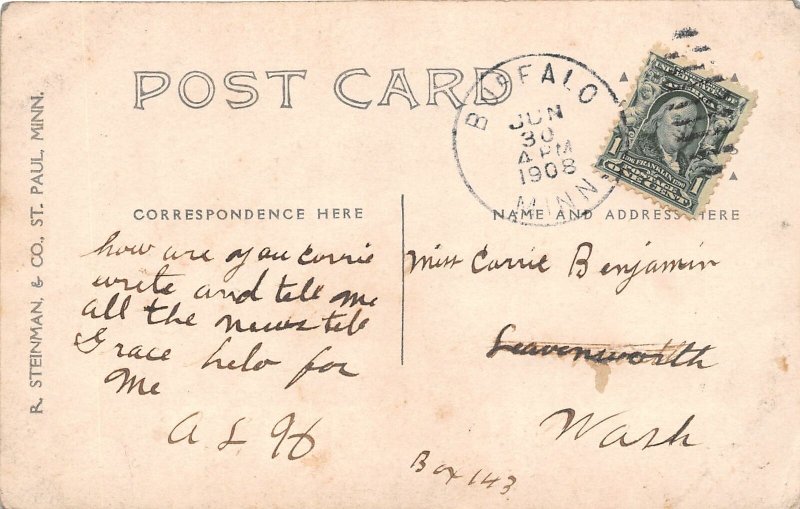 POST CARD
BUFFALO
JUN
30
4 PM
1908
MINN
1 POSTAGE 1
ONE CENT
CORRESPONDENCE HERE
NAME AND ADDRESS HERE
how are you Corrie
write and tell me
all the news tell
Grace helo for
me
A L H
Miss Carrie Benjamin
Leavenworth
Wash
Box 143
R. STEINMAN, & CO., ST. PAUL, MINN.